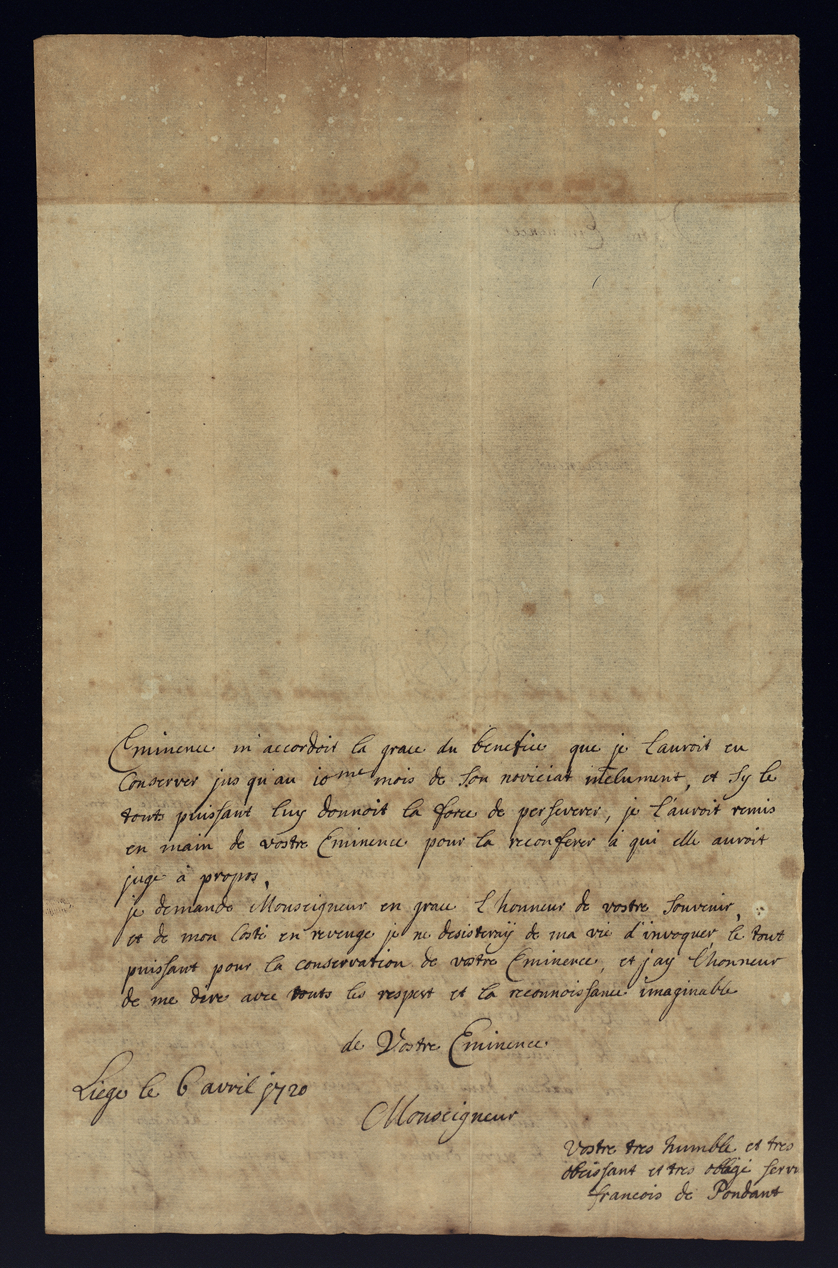 Eminence m'accordoit la grace du benefice que je l'auroit eu
Conserver jusqu'au 10me mois de son noviciat inclument, et sy le
touts puissant luy donnoit la force de perseverer, je l'auroit remis
en main de vostre Eminence pour la reconferer à qui elle auroit
jugé à propos.
je demande Monseigneur en grace l'honneur de vostre souvenir,
et de mon costé en revenge je ne desisteray de ma vie d'invoquer le tout
puissant pour la conservation de vostre Eminence, et j'ay l'honneur
de me dire avec touts les respect et la reconnoissance imaginable
de Vostre Eminence
Liege le 6 avril 1720
Monseigneur
Vostre tres humble et tres
obeissant et tres obligé serv
francois de Pondant